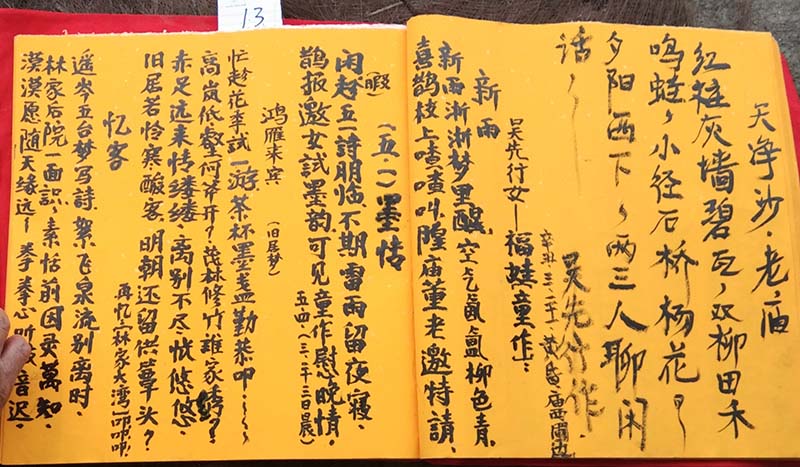 13
天净沙·老庙
红柱灰墙碧瓦，双柳田禾
鸣蛙，小径石桥杨花，
夕阳西下，两三人聊闲
话
吴先行作
辛丑·三·二十·黄昏·庙西圃边
新雨
吴先行女——福娃童作：
新雨淅淅梦里醒，空气氤氲柳色青，
喜鹊枝上喳喳叫，隍庙董老邀特請，
（五·一）墨情
闲（暇）趁五一詩朋临，不期雷雨留夜寝，
鹊报邀女試墨韵，可见童作慰晚情，
五·四·（三·二十三日晨）
鸿雁来宾
（旧居梦）
忙趁花季試一游，茶杯墨盏勤恭叩
高岚低壑何苹开？茂林修竹誰家
赤足远来情缕缕，离别不尽恍悠悠，
旧居若怜寒酸客，明朝还留供蕈头？
再忆三林家大湾，叩叩叩
忆客
遥岑五台梦写詩，絮飞泉流别离时，
林家后院一面識，素恬前因
漠漠愿随天缘远，拳拳心